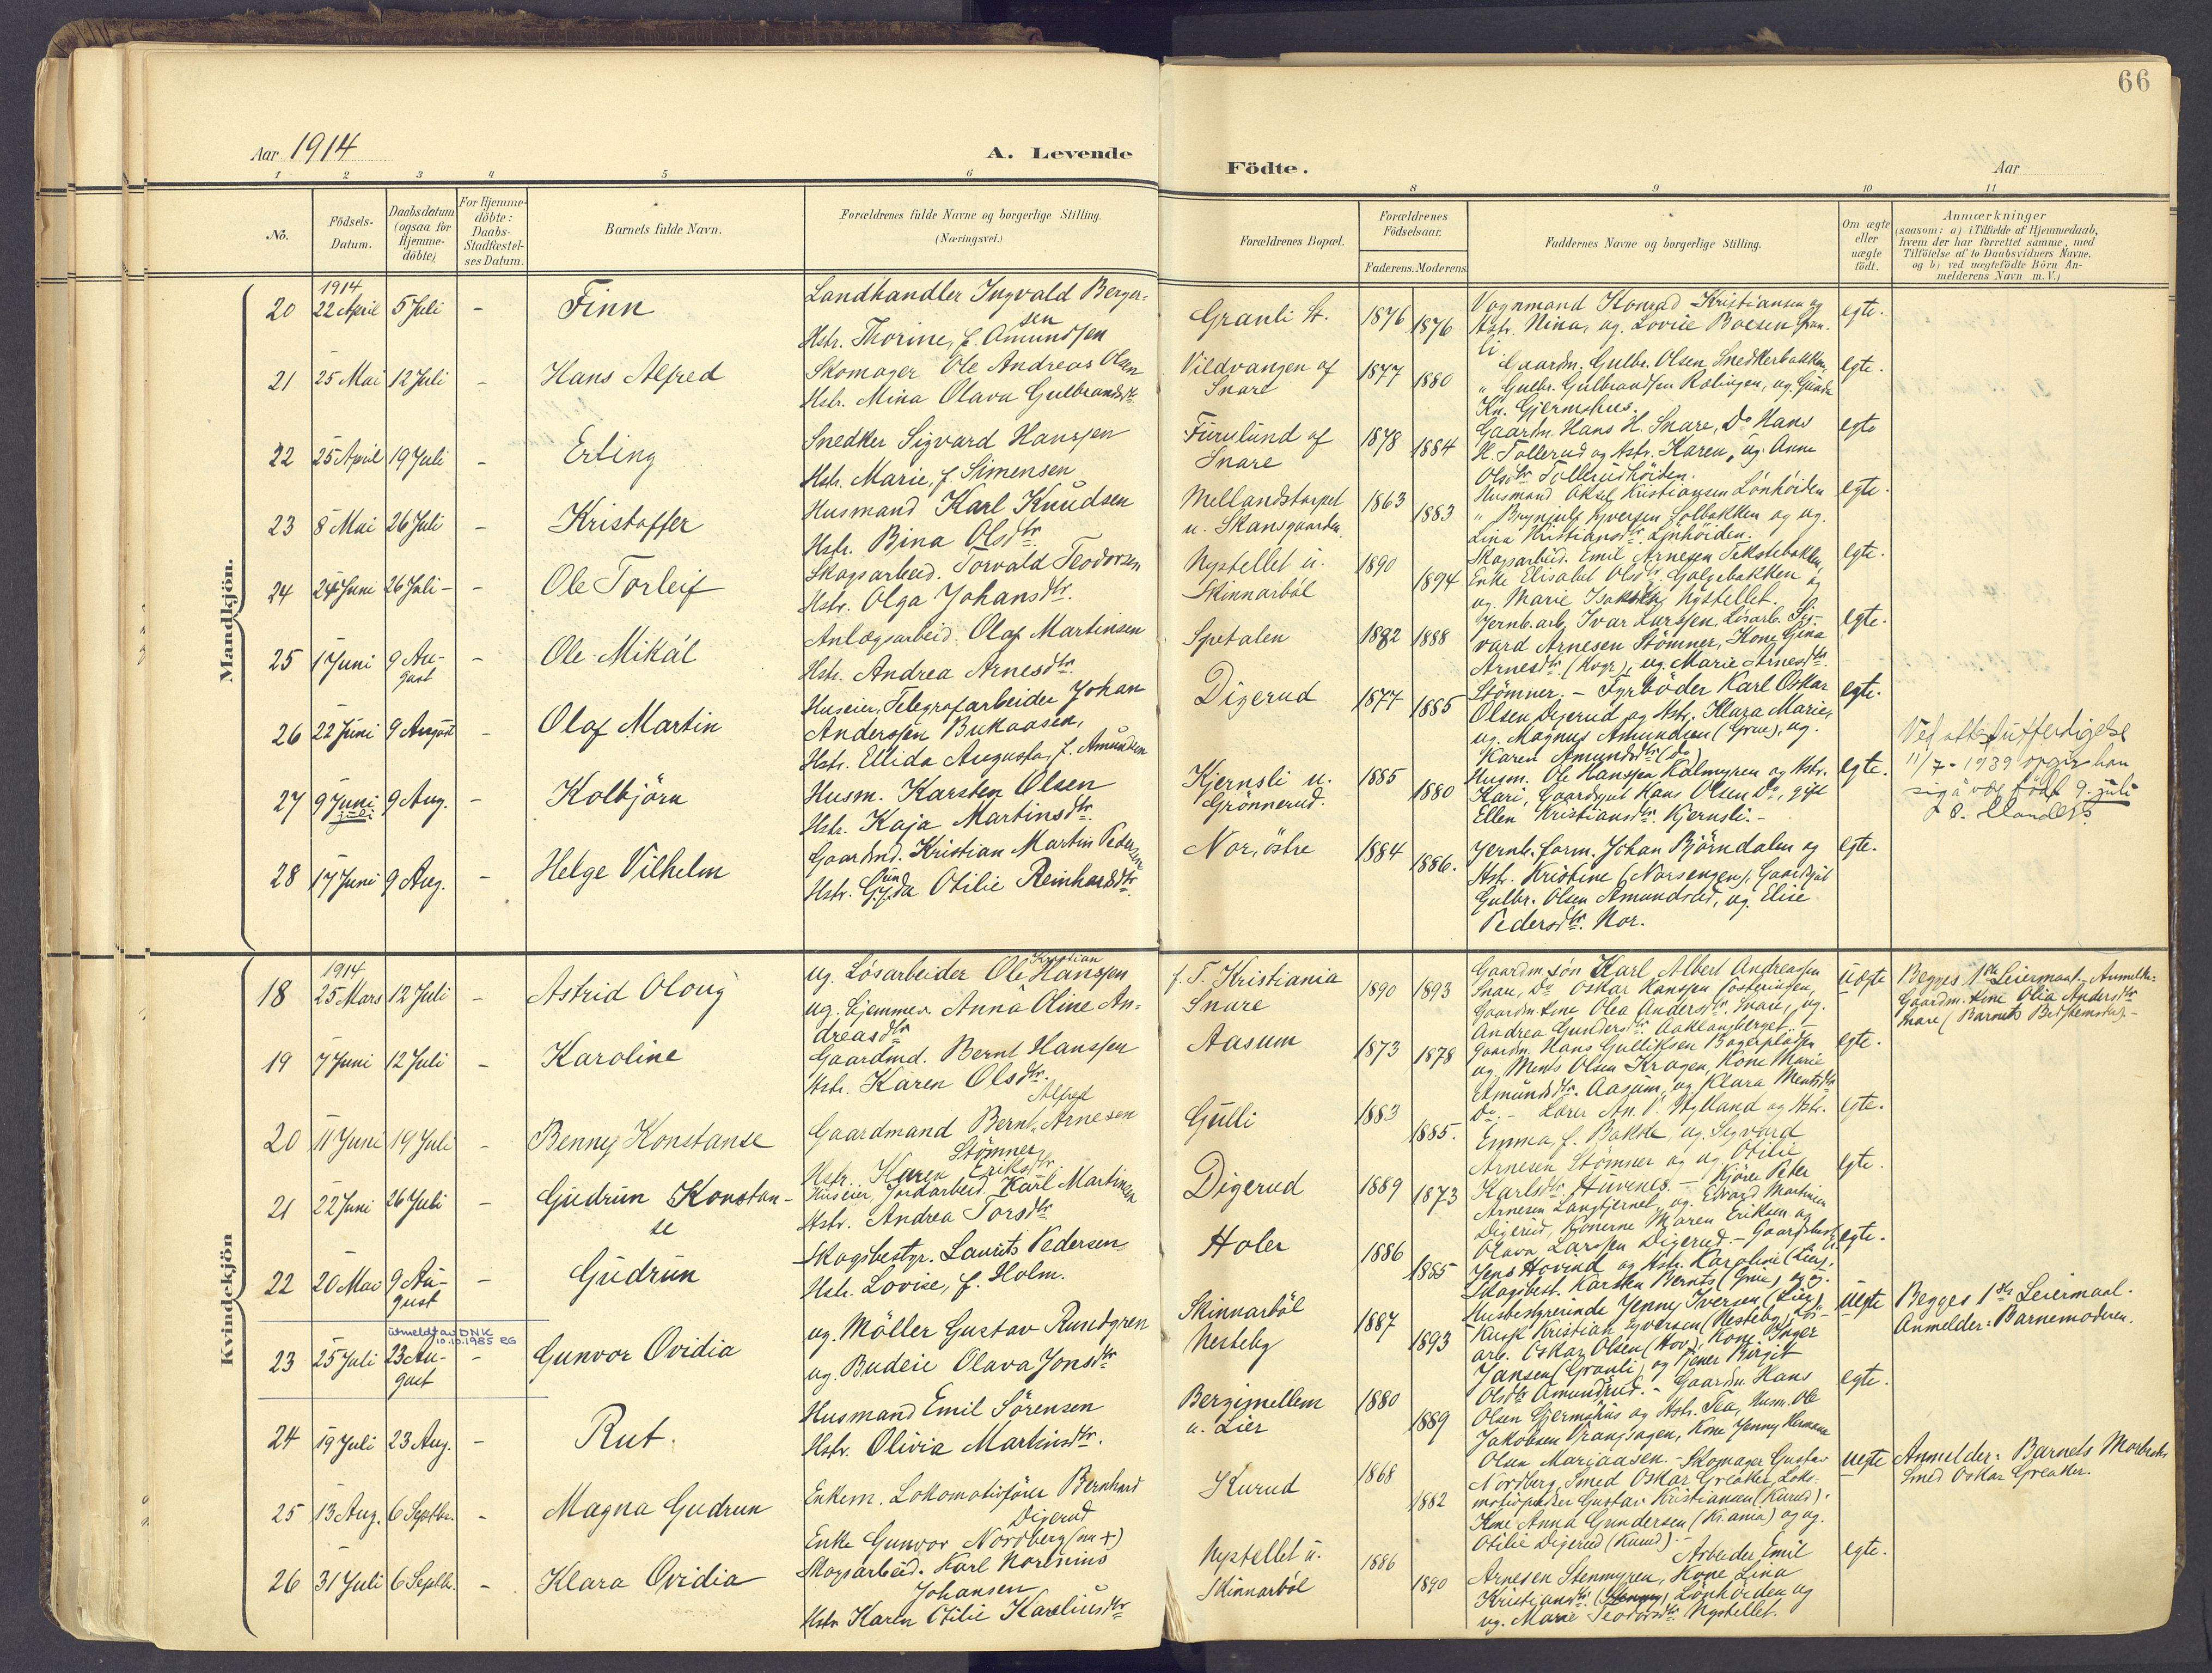 66
Aar 1914
A. Levende
Födte.
Aar
1 2 3 4 5 6 8 9 10 11
No.
Födsels-Datum.
Daabsdatum (ogsaa for Hjemme-döbte)
For Hjemme-döbte: Daabs-Stadfæstel-ses Datum.
Barnets fulde Navn.
Forældrenes fulde Navne og borgerlige Stilling.
(Næringsvei.)
Forældrenes Bopæl.
Forældrenes Födselsaar.
Faderens. Moderens
Faddernes Navne og borgerlige Stilling.
Om ægte eller uægte födt.
Anmærkninger
(saasom: a) i Tilfælde af Hjemmedaab,
hvem der har forrettet samme, med
Tilföielse af to Daabsvidners Navne.
og b) ved uægtefödte Börn An-
melderens Navn m. V.)
Mandkjön.
1914
20 22 April 5 Juli - Finn
Landhandler Ingvald Berger-
sen
Hstr. Thorine, f. Amundsen
Granli St. 1876 1876
Vognmand Konrad Kristiansen og
Hstr. Nina, ug. Lovise Boesen Gran-
li
egte.
21 25 Mai 12 Juli - Hans Alfred
Skomager Ole Andreas Olsen
Hstr. Mina Olava Gulbrandsdtr
Vildvangen af
Snare
1877 1880
Gaardm. Gulbr. Olsen Snedkerbakken,
" Gulbr. Gulbrandsen Rolingen, ug. Gunda
Kn. Gjermshus.
egte.
22 25 April 19 Juli - Erling
Snedker Sigvard Hanssen
Hstr. Marie, f. Simensen
Furulund af
Snare
1878 1884
Gaardm. Hans H. Snare, Do Hans
H. Tollerud og Hstr. Karen, ug. Anne
Olsdtr Tollerudhöiden.
egte
23 8 Mai 26 Juli - Kristoffer
Husmand Karl Knudsen
Hstr. Bina Olsdtr
Mellandstorpet
u. Skansgaarden
1863 1883
Husmand Aksel Kristiansen Lönhöiden
" Brynjulf Syversen Solbakken og ug.
Lina Kristiansdtr. Lönhöiden.
egte.
24 24 Juni 26 Juli - Ole Torleif
Skogsarbeid. Torvald Teodorsen
Hstr. Olga Johansdtr.
Nystellet u.
Skinnarböl
1890 1894
Skogsarbeid. Emil Arnesen
Enke Elisabet Olsdtr. Galgebakken og
ug. Marie Isaksen Nystellet.
egte.
25 1 Juni 9 Au-
gust
- Ole Mikal
Anlægsarbeid. Olaf Martinsen
Hstr. Andrea Arnesdtr.
Spetalen 1882 1888
Jernb.arb. Ivar Larssen, Lösarb. Sig-
vard Arnesen Stömner, Kone Gina
Arnesdtr (Kogr), ug. Marie Arnesdtr.
egte.
26 22 Juni 9 August - Olaf Martin
Huseier, Telegrafarbeider Johan
Anderssen Bukaasen,
Hstr. Ellida Augusta, f. Amundsen
Digerud 1877 1885
Stömner. - Fyrböder Karl Oskar
Olsen Digerud og Hstr. Klara Marie,
ug. Magnus Amundsen (Grue), ug.
Karen Amundsdtr (do)
egte.
27 9 Juni 9 Aug. - Kolbjörn
juli
Husm. Karsten Olsen
Hstr. Kaja Martinsdtr.
Kjernsli u.
Grönnerud.
1885 1880
Husm. Ole Hanssen Kalmyren og Hstr.
Kari, Gaardgut Hans Olsen Do, gift
Ellen Kristiansdtr. Kjernsli. -
egte.
Ved attestutferdigelse
11/7 - 1939 opgir han
sig å være födt 9. juli
28 17 Juni 9 Aug. - Helge Vilhelm
Gaardmd. Kristian Martin Pedersen
Hstr. Gyda Otilie Reinhardsdtr
Nor, östre 1884 1886.
Jernb. form. Johan Björndalen og
Hstr. Kristine (Norsengen), Gaardgut
Gulbr. Olsen Amundrud, ug. Elise
Pedersdtr. Nor.
egte.
Kvindekjön
1914
18 25 Mars 12 Juli - Astrid Oloug
ug. Lösarbeider Ole Kristian Hanssen
ug. hjemmev. Anna Oline An-
dreasdtr
f. T. Kristiania
Snare
1890 1893
Gaardm.sön Karl Albert Andreassen
Snare, Do Oskar Hanssen Fosteringen,
Gaardm.kone Olea Andersdtr. Snare, ug.
Andrea Gundersdtr. Aaklangberget. -
uegte
Begges 1ste Leiermaal. Anmelder:
Gaardm. kone Olia Andersdtr
Snare (Barnets Bestemoder). -
19 7 Juni 12 Juli - Karoline
Gaardmd. Bernt Hanssen
Hstr. Karen Olsdtr.
Aasum 1873 1878
Gaardm. Hans Gulliksen Bagerplassen
ug. Ments Olsen Kragen, Kone Marie
Amundsdtr. Aasum, ug. Klara Mentsdtr
Do. -
egte.
20 11 Juni 19 Juli - Benny Konstanse
Gaardmand Bernt Alfred Arnesen
Stömner
Hstr. Karen Eriksdtr
Gulli 1883 1885.
Lærer An. O. Hylland og Hstr.
Emma, f. Bakke, ug. Sigvard
Arnesen Stömner og ug. Otilie
Karlsdtr. Huvenes. -
egte.
21 22 Juni 26 Juli - Gudrun Konstan-
se
Huseier, Jordarbeid. Karl Martinsen
Hstr. Andrea Torsdtr
Digerud 1889 1873
Kjörer Peter
Arnesen Langtjernet, ug. Edvard Martinsen
Digerud, Konerne Maren Eriksen og
Olava Larssen Digerud. -
egte.
22 20 Mai 9 Au-
gust
- Gudrun
Skogsbestyr. Laurits Pedersen
Hstr. Lovise, f. Holm.
Holer 1886 1885
Jens Hovind og Hstr. Karoline (Lier),
Skogsbest. Karsten Bernts (Grue), og
Husbestyrerinde Jenny Iversen (Lier)
egte.
utmeldt av DNK
10.10.1985 EG
23 25 Juli 23 Au-
gust
- Gunvor Ovidia
ug. Möller Gustav Rundgren
ug. Budeie Olava Jonsdtr
Skinnarböl
Nesteby
1887 1893
Kusk Kristian Syversen (Nesteby), Lös-
arb. Oskar Olsen (Hov), Kone Inger
Jansen (Granli), og Tjener Birgit
Olsdtr Amundrud. -
uegte
Begges 1ste Leiermaal.
Anmelder: Barnemoderen.
24 19 Juli 23 Aug. - Rut.
Husmand Emil Sörensen
Hstr. Olivia Martinsdtr.
Bergimellem
u. Lier
1880 1889
Gaardm. Hans
Olsen Gjermshus og Hstr. Tea, Husm. Ole
Jakobsen Vrangsagen, Kone Jenny
Olsen Mariaasen. -
egte.
25 13 Aug. 6 Septbr. - Magna Gudrun
Enkem. Lokomotivförer Bernhard
Digerud
Enke Gunvor Nordberg (nu +)
Kurud 1868 1882
Skomager Gustav
Nordberg, Smed Oskar Greaker, Loko-
motivpudser Gustav Kristiansen (Kurud),
Kone Anna Gundersen (Kr.ania) og ug.
Otilie Digerud (Kurud). -
uegte
Anmelder: Barnets Morbroder
Smed Oskar Greaker.
26 31 Juli 6 Septbr. - Klara Ovidia
Skogsarbeid. Karl Norenius
Johansen
Hstr. Karen Otilie Kareliusdtr
Nystellet u.
Skinnarböl
1886 1890
Arbeider Emil
Arnesen Stenmyren, Kone Lina
Kristiansdtr. Lönhöiden og
ug. Marie Teodorsdtr. Nystellet.
egte.